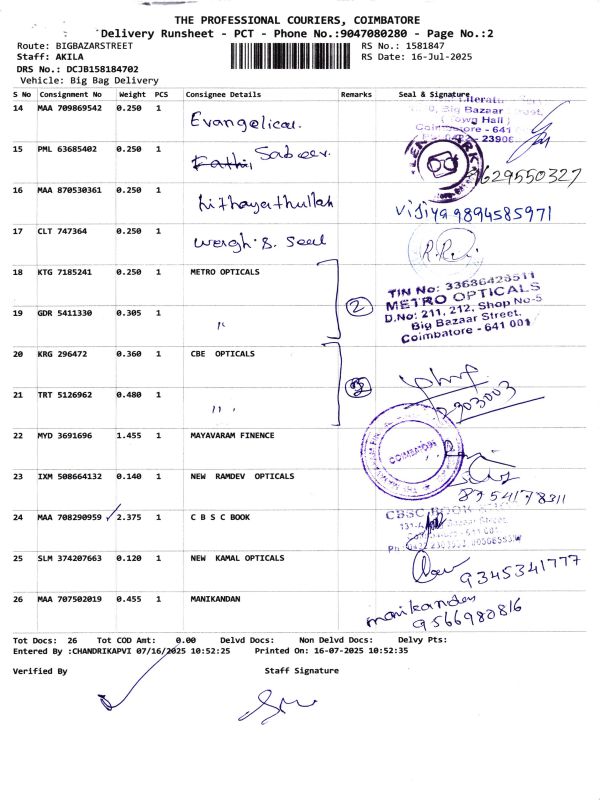 THE PROFESSIONAL COURIERS, COIMBATORE
Delivery Runsheet - PCT - Phone No.:9047080280 - Page No.:2
Route: BIGBAZARSTREET RS No.: 1581847
Staff: AKILA RS Date: 16-Jul-2025
DRS No.: DCJB158184702
Vehicle: Big Bag Delivery
S No Consignment No Weight PCS Consignee Details Remarks Seal & Signature
14 MAA 709869542 0.250 1 Evangelical
Big Bazaar
(Town Hall)
Coimbatore - 641
15 PML 63685402 0.250 1 Fathi Sabeer
9629550327
16 MAA 870530361 0.250 1 hithayathullah Vijiya 9894585971
17 CLT 747364 0.250 1 weigh & seal
18 KTG 7185241 0.250 1 METRO OPTICALS
19 GDR 5411330 0.305 1 " 2
TIN No: 33636428511
METRO OPTICALS
D.No: 211, 212, Shop No-5
Big Bazaar Street,
Coimbatore - 641 001
20 KRG 296472 0.360 1 CBE OPTICALS
21 TRT 5126962 0.480 1 "
22 MYD 3691696 1.455 1 MAYAVARAM FINENCE COIMBATORE
23 IXM 508664132 0.140 1 NEW RAMDEV OPTICALS 8954178311
24 MAA 708290959 ✓ 2.375 1 C B S C BOOK
CBSC BOOK
25 SLM 374207663 0.120 1 NEW KAMAL OPTICALS 9345341777
26 MAA 707502019 0.455 1 MANIKANDAN manikandan
9566980816
Tot Docs: 26 Tot COD Amt: 0.00 Delvd Docs: Non Delvd Docs: Delvy Pts:
Entered By :CHANDRIKAPVI 07/16/2025 10:52:25 Printed On: 16-07-2025 10:52:35
Verified By Staff Signature